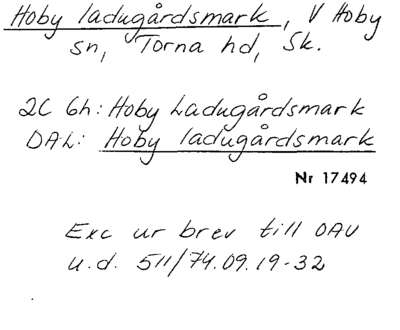 Hoby ladugårdsmark, V Hoby
sn, Torna hd, Sk.
2C 6h: Hoby Ladugårdsmark
DAL: Hoby ladugårdsmark
Nr 17494
Exc ur brev till OAU
u.d. 511/74.09.19-32